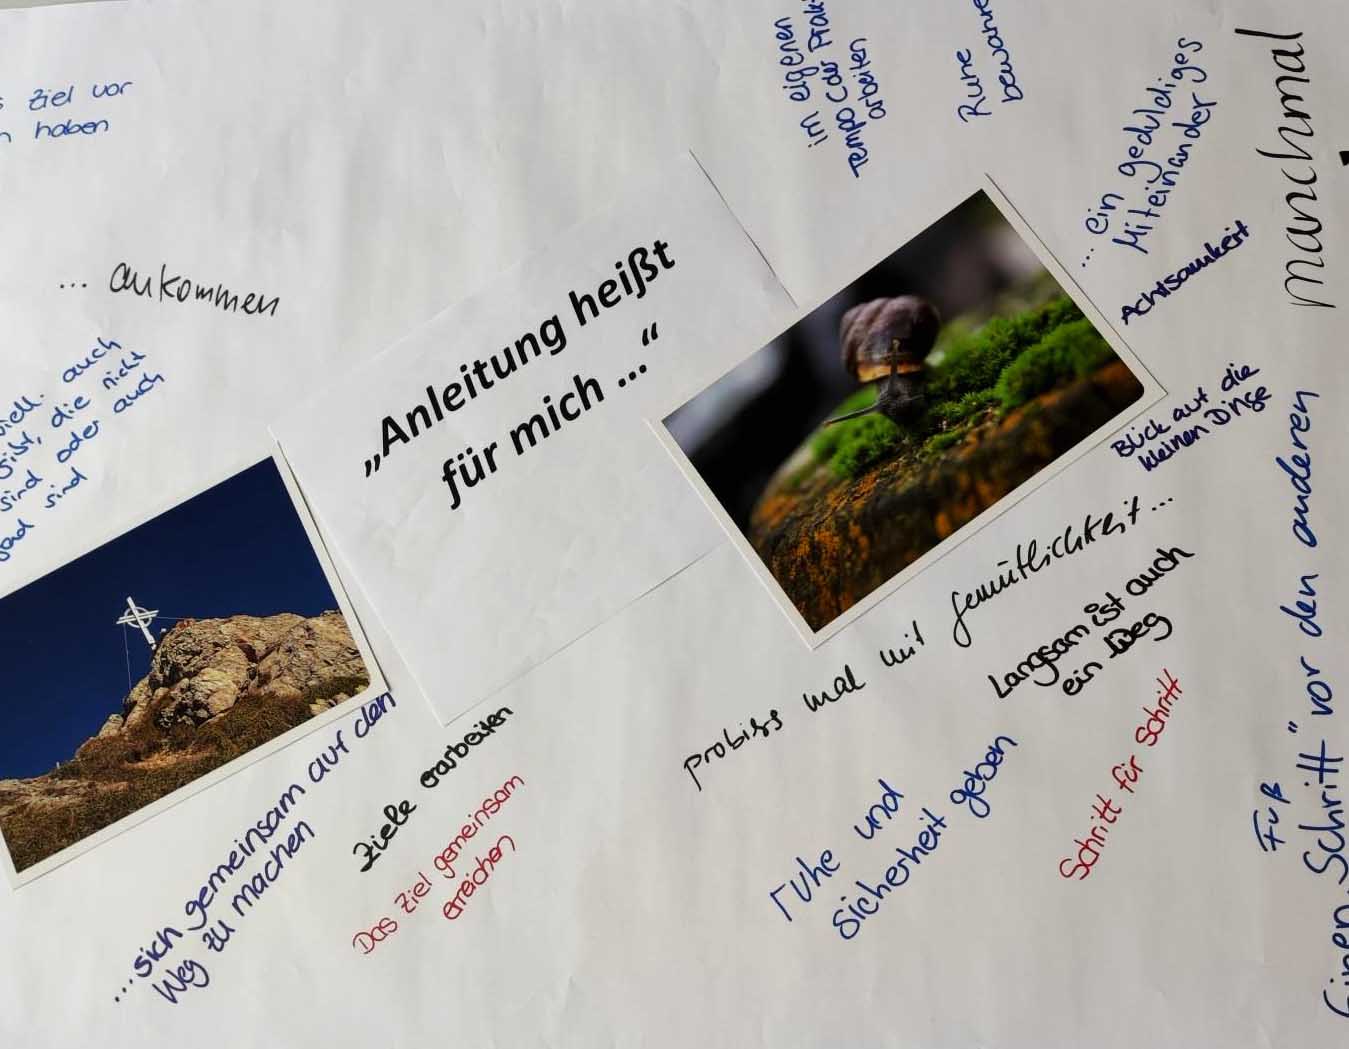 Ziel vor
haben
... ankommen
auch
gibt, die nicht
sind oder auch
sind
„Anleitung heißt
für mich ...“
im eigenen
Tempo (der
arbeiten
Ruhe
.... ein geduldiges
Miteinander
Achtsamkeit
Blick auf die
kleinen Dinge
probiers mal mit gemütlichkeit...
Langsam ist auch
ein Weg
Schritt für Schritt
ruhe und
Sicherheit geben
Ziele erarbeiten
Das Ziel gemeinsam
erreichen
...sich gemeinsam auf den
Weg zu machen
manchmal
Einen „Schritt“ vor den anderen
Fuß